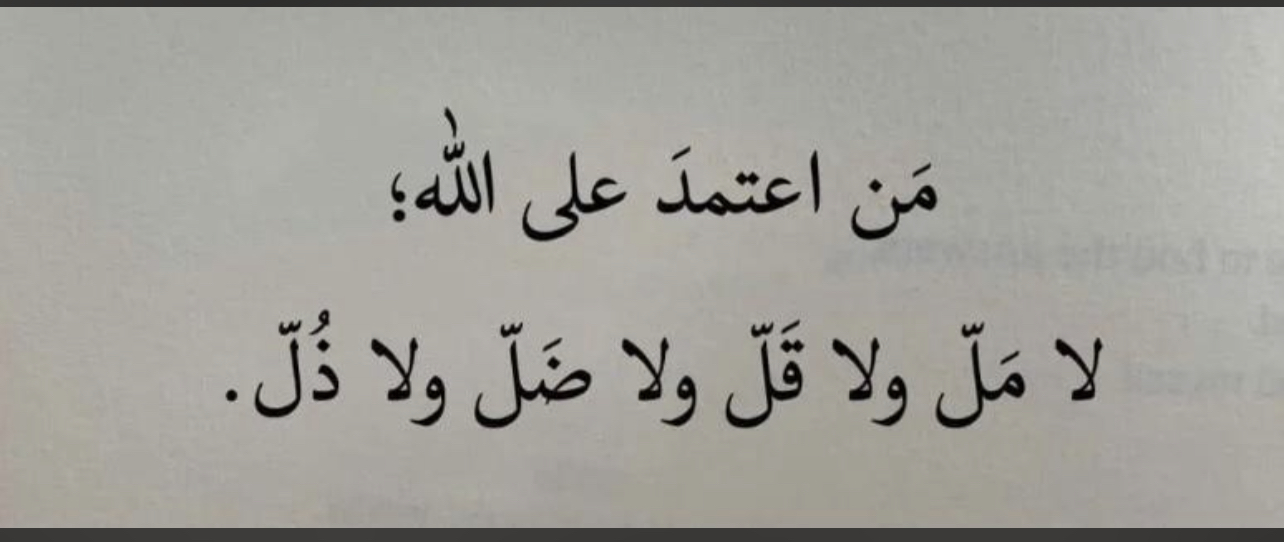 مَن اعتمدَ على اللّٰه؛
لا مَلّ ولا قَلّ ولا ضَلّ ولا ذُلّ.